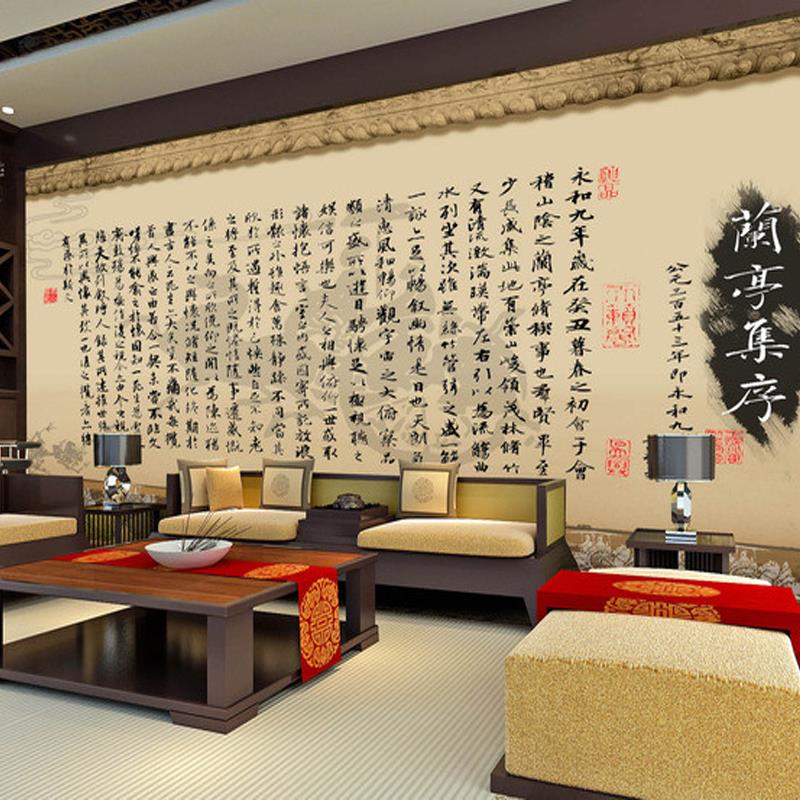 蘭亭集序
公元三百五十三年即永和九
永和九年歲在癸丑暮春之初會于會
稽山陰之蘭亭脩稧事也群賢畢至
少長咸集此地有崇山峻領茂林脩竹
又有清流激湍暎帶左右引以為流觴曲
水列坐其次雖無絲竹管弦之盛一觴
一詠亦足以暢敘幽情是日也天朗氣
清惠風和暢仰觀宇宙之大俯察品
類之盛所以遊目騁懷足以極視聽之
娛信可樂也夫人之相與俯仰一世或取
諸懷抱悟言一室之內或因寄所託放浪
形骸之外雖趣舍萬殊靜躁不同當其
欣於所遇暫得於己快然自足不知老
之將至及其所之既倦情隨事遷感慨
係之矣向之所欣俛仰之間以為陳迹猶
不能不以之興懷況脩短隨化終期於
盡古人云死生亦大矣豈不痛哉每攬
昔人興感之由若合一契未嘗不臨文
嗟悼不能喻之於懷固知一死生為虛誕
齊彭殤為妄作後之視今亦由今之視昔
悲夫故列敘時人錄其所述雖世殊
事異所以興懷其致一也後之攬者亦將
有感於斯文